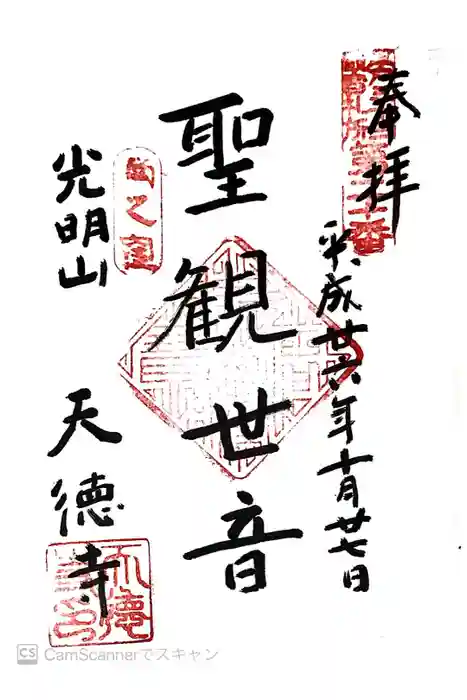 奉拝
平成廿六年十月廿七日
聖観世音
光明山
天徳寺
CS CamScannerでスキャン